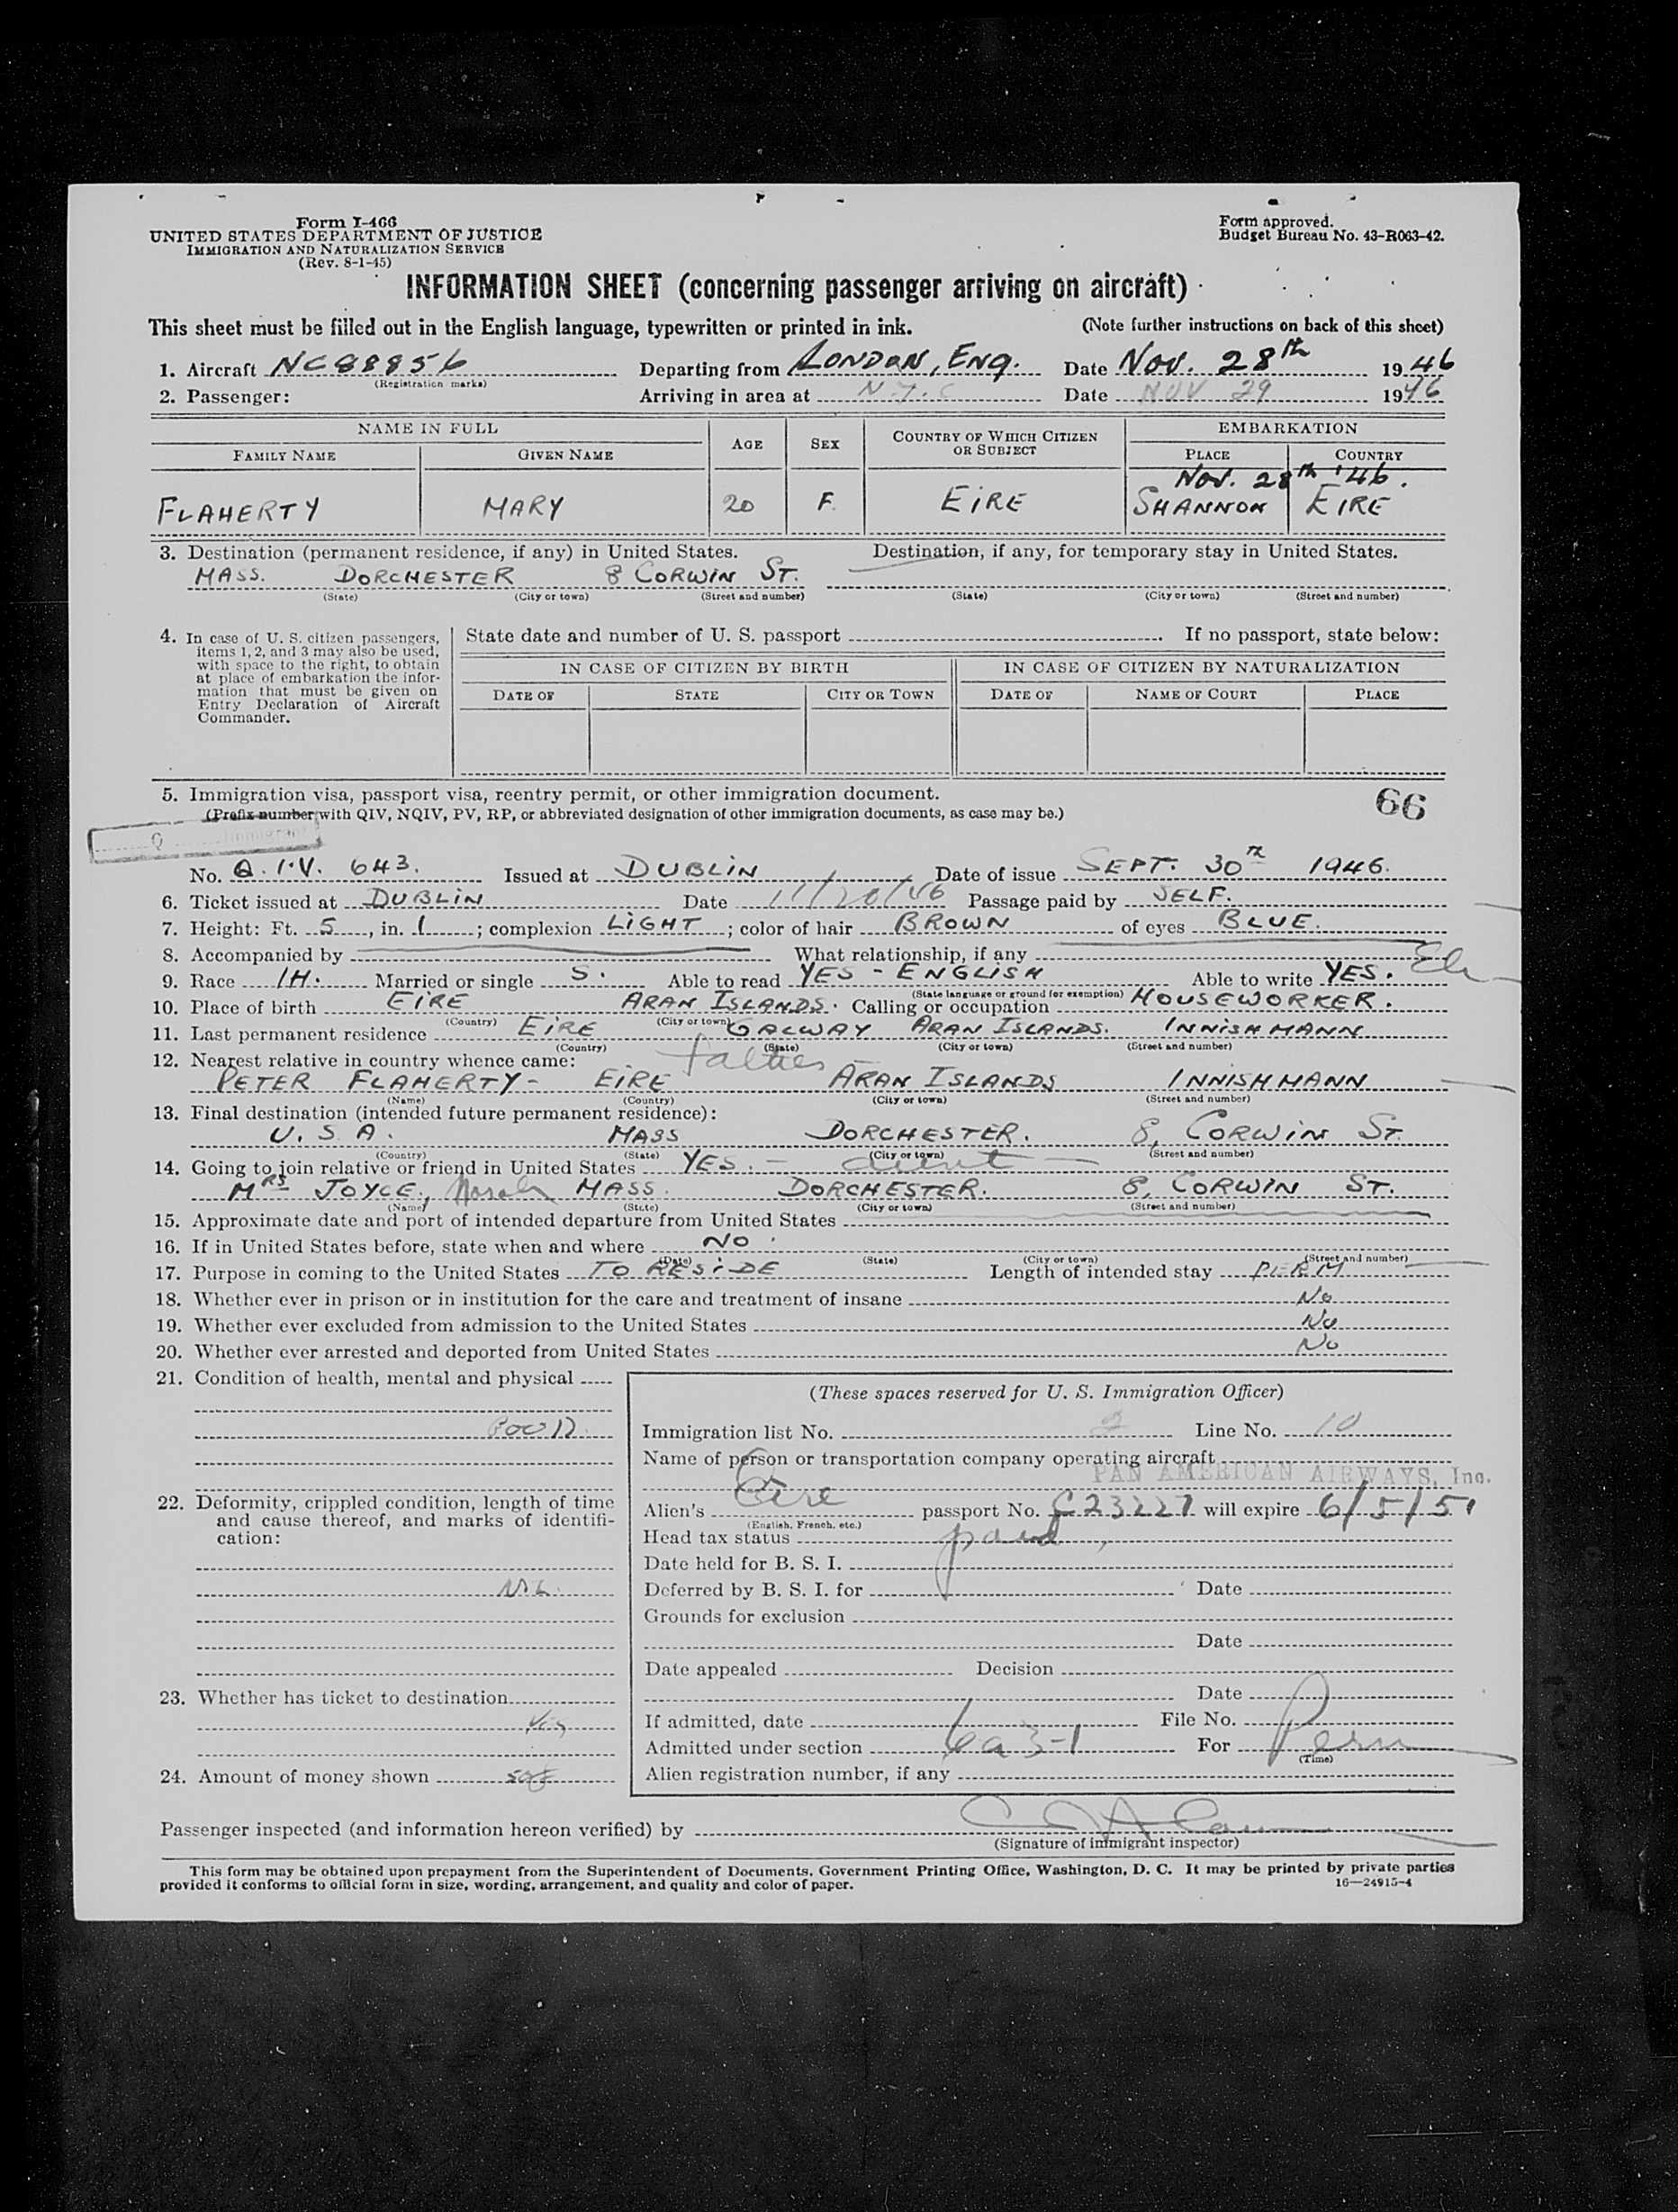 Form I-466
UNITED STATES DEPARTMENT OF JUSTICE
IMMIGRATION AND NATURALIZATION SERVICE
(Rev. 8-1-45)
Form approved.
Budget Bureau No. 43-R063-42.
INFORMATION SHEET (concerning passenger arriving on aircraft)
This sheet must be filled out in the English language, typewritten or printed in ink. (Note further instructions on back of this sheet)
1. Aircraft NC88856 Departing from LONDON, ENG. Date Nov. 28th 1946
(Registration marks)
2. Passenger: Arriving in area at N.Y.C Date NOV 29 1946
NAME IN FULL AGE SEX COUNTRY OF WHICH CITIZEN OR SUBJECT EMBARKATION
FAMILY NAME GIVEN NAME PLACE COUNTRY
Nov. 28th '46.
FLAHERTY MARY 20 F. EIRE SHANNON EIRE
3. Destination (permanent residence, if any) in United States. Destination, if any, for temporary stay in United States.
MASS. DORCHESTER 8 CORWIN ST.
(State) (City or town) (Street and number) (State) (City or town) (Street and number)
4. In case of U. S. citizen passengers, items 1, 2, and 3 may also be used, with space to the right, to obtain at place of embarkation the information that must be given on Entry Declaration of Aircraft Commander.
State date and number of U. S. passport . If no passport, state below:
IN CASE OF CITIZEN BY BIRTH IN CASE OF CITIZEN BY NATURALIZATION
DATE OF STATE CITY OR TOWN DATE OF NAME OF COURT PLACE
5. Immigration visa, passport visa, reentry permit, or other immigration document. 66
(Prefix number with QIV, NQIV, PV, RP, or abbreviated designation of other immigration documents, as case may be.)
Q Immigrant
No. Q.I.V. 643. Issued at DUBLIN Date of issue SEPT. 30th 1946.
6. Ticket issued at DUBLIN Date 11/20/46 Passage paid by SELF.
7. Height: Ft. 5, in. 1; complexion LIGHT; color of hair BROWN of eyes BLUE.
8. Accompanied by What relationship, if any
9. Race IH. Married or single S. Able to read YES - ENGLISH Able to write YES.
(State language or ground for exemption)
10. Place of birth EIRE ARAN ISLANDS. Calling or occupation HOUSEWORKER.
(Country) (City or town)
11. Last permanent residence EIRE GALWAY ARAN ISLANDS. INNISHMANN
(Country) (State) (City or town) (Street and number)
12. Nearest relative in country whence came: father
PETER FLAHERTY - EIRE ARAN ISLANDS INNISHMANN
(Name) (Country) (City or town) (Street and number)
13. Final destination (intended future permanent residence):
U.S.A. MASS DORCHESTER. 8, CORWIN ST.
(Country) (State) (City or town) (Street and number)
14. Going to join relative or friend in United States YES. - aunt
MRS JOYCE, Norah MASS. DORCHESTER. 8, CORWIN ST.
(Name) (State) (City or town) (Street and number)
15. Approximate date and port of intended departure from United States
16. If in United States before, state when and where NO.
(Date) (State) (City or town) (Street and number)
17. Purpose in coming to the United States TO RESIDE Length of intended stay PERM
18. Whether ever in prison or in institution for the care and treatment of insane No
19. Whether ever excluded from admission to the United States No
20. Whether ever arrested and deported from United States No
21. Condition of health, mental and physical
GOOD.
22. Deformity, crippled condition, length of time and cause thereof, and marks of identification:
NIL.
23. Whether has ticket to destination
Yes
24. Amount of money shown
(These spaces reserved for U. S. Immigration Officer)
Immigration list No. 2 Line No. 10
Name of person or transportation company operating aircraft
PAN AMERICAN AIRWAYS, Inc.
Alien's Eire passport No. C23227 will expire 6/5/51
(English, French, etc.)
Head tax status paid
Date held for B. S. I.
Deferred by B. S. I. for Date
Grounds for exclusion
Date
Date appealed Decision
Date
If admitted, date File No.
Admitted under section 6a3-1 For Perm
(Time)
Alien registration number, if any
Passenger inspected (and information hereon verified) by
(Signature of immigrant inspector)
This form may be obtained upon prepayment from the Superintendent of Documents, Government Printing Office, Washington, D. C. It may be printed by private parties
provided it conforms to official form in size, wording, arrangement, and quality and color of paper. 16—24915-4